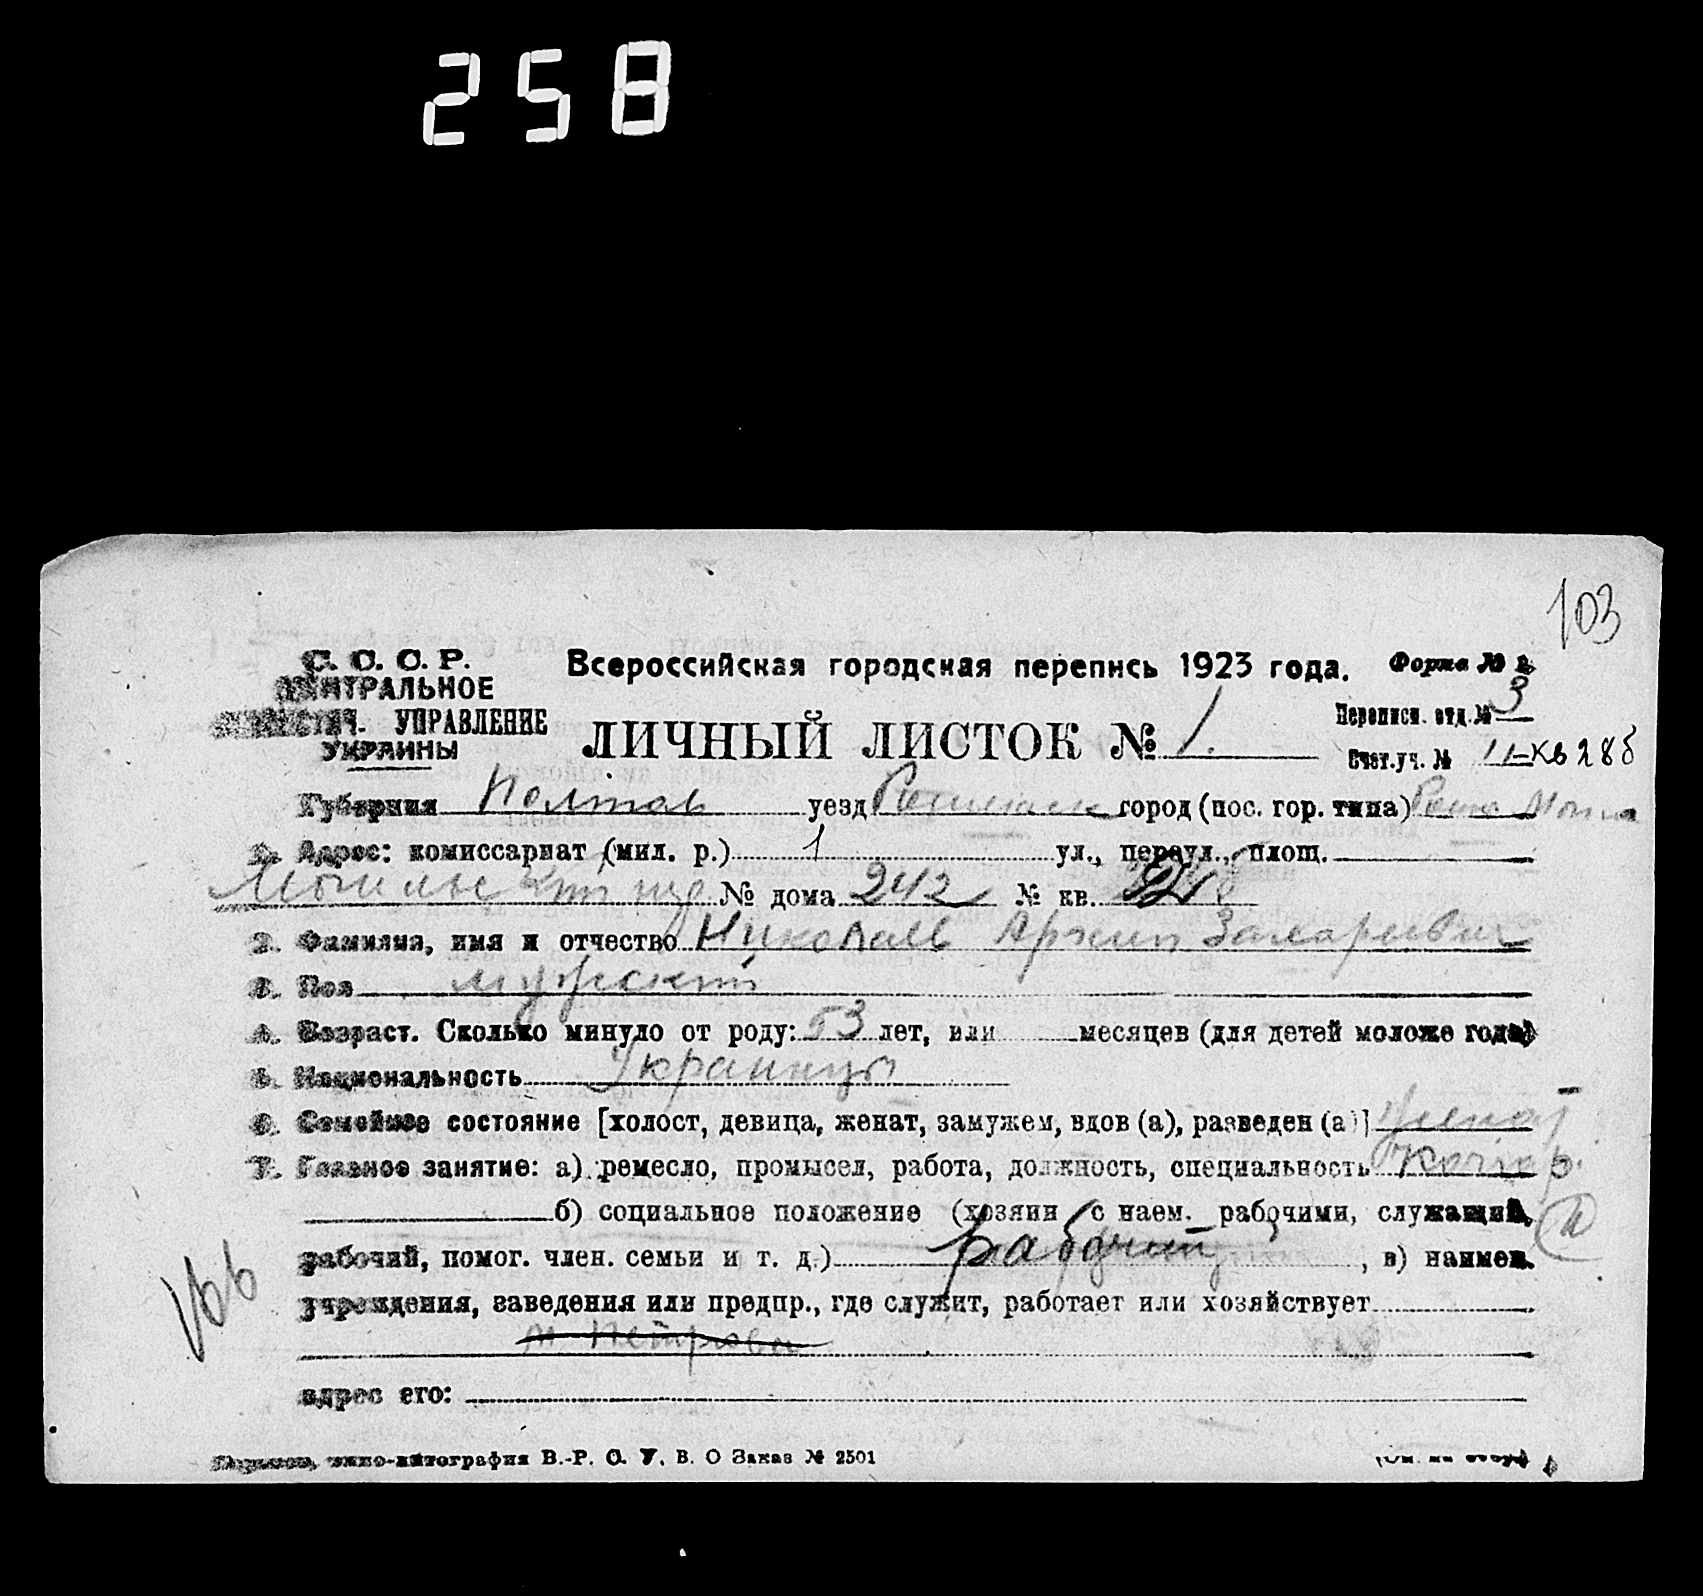 258
103
С. С. С. Р.
ЦЕНТРАЛЬНОЕ
СТАТИСТИЧ. УПРАВЛЕНИЕ
УКРАИНЫ
Всероссийская городская перепись 1923 года.
Форма №
ЛИЧНЫЙ ЛИСТОК № 1.
Переписн. отд. № 3
Счет. уч. № 11-кв 28б
Губерния Полтав уезд город (пос. гор. типа)
1. Адрес: комиссариат (мил. р.) 1 ул., переул., площ.
№ дома 242 № кв.
2. Фамилия, имя и отчество Николаев Архип Захарович
3. Пол мужской
4. Возраст. Сколько минуло от роду: 53 лет, или месяцев (для детей моложе года)
5. Национальность Украинцы
6. Семейное состояние [холост, девица, женат, замужем, вдов (а), разведен (а)] женат
7. Главное занятие: а) ремесло, промысел, работа, должность, специальность
б) социальное положение (хозяин с наем. рабочими, служащий,
рабочий, помог. член. семьи и т. д.) рабочий, в) наимен.
учреждения, заведения или предпр., где служит, работает или хозяйствует
адрес его:
166
Харьков, типо-литография В.-Р. С. У. В. О Заказ № 2501
(См. на обор.)